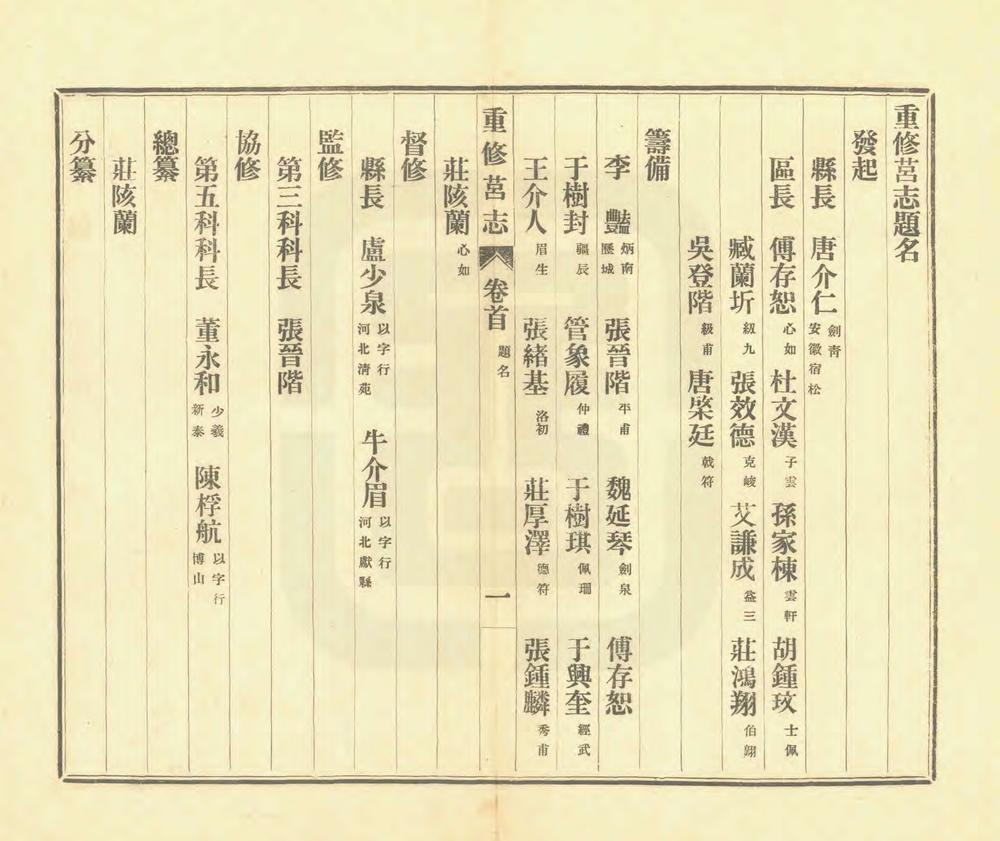 重修莒志題名
發起
縣長 唐介仁 劍青 安徽宿松
區長 傅存恕 心如 杜文漢 子雲 孫家棟 雲軒 胡鍾玟 士佩
臧蘭圻 紉九 張效德 克峻 艾謙成 益三 莊鴻翔 伯翊
吳登階 級甫 唐棨廷 戟符
籌備
李豔 炳南 歷城 張晉階 平甫 魏延琴 劍泉 傅存恕
于樹封 疆辰 管象履 仲禮 于樹琪 佩珊 于興奎 經武
王介人 眉生 張緒基 洛初 莊厚澤 德符 張鍾麟 秀甫
重修莒志 卷首 題名 一
莊陔蘭 心如
督修
縣長 盧少泉 以字行 河北清苑 牛介眉 以字行 河北獻縣
監修
第三科科長 張晉階
協修
第五科科長 董永和 少羲 新泰 陳桴航 以字行 博山
總纂
莊陔蘭
分纂